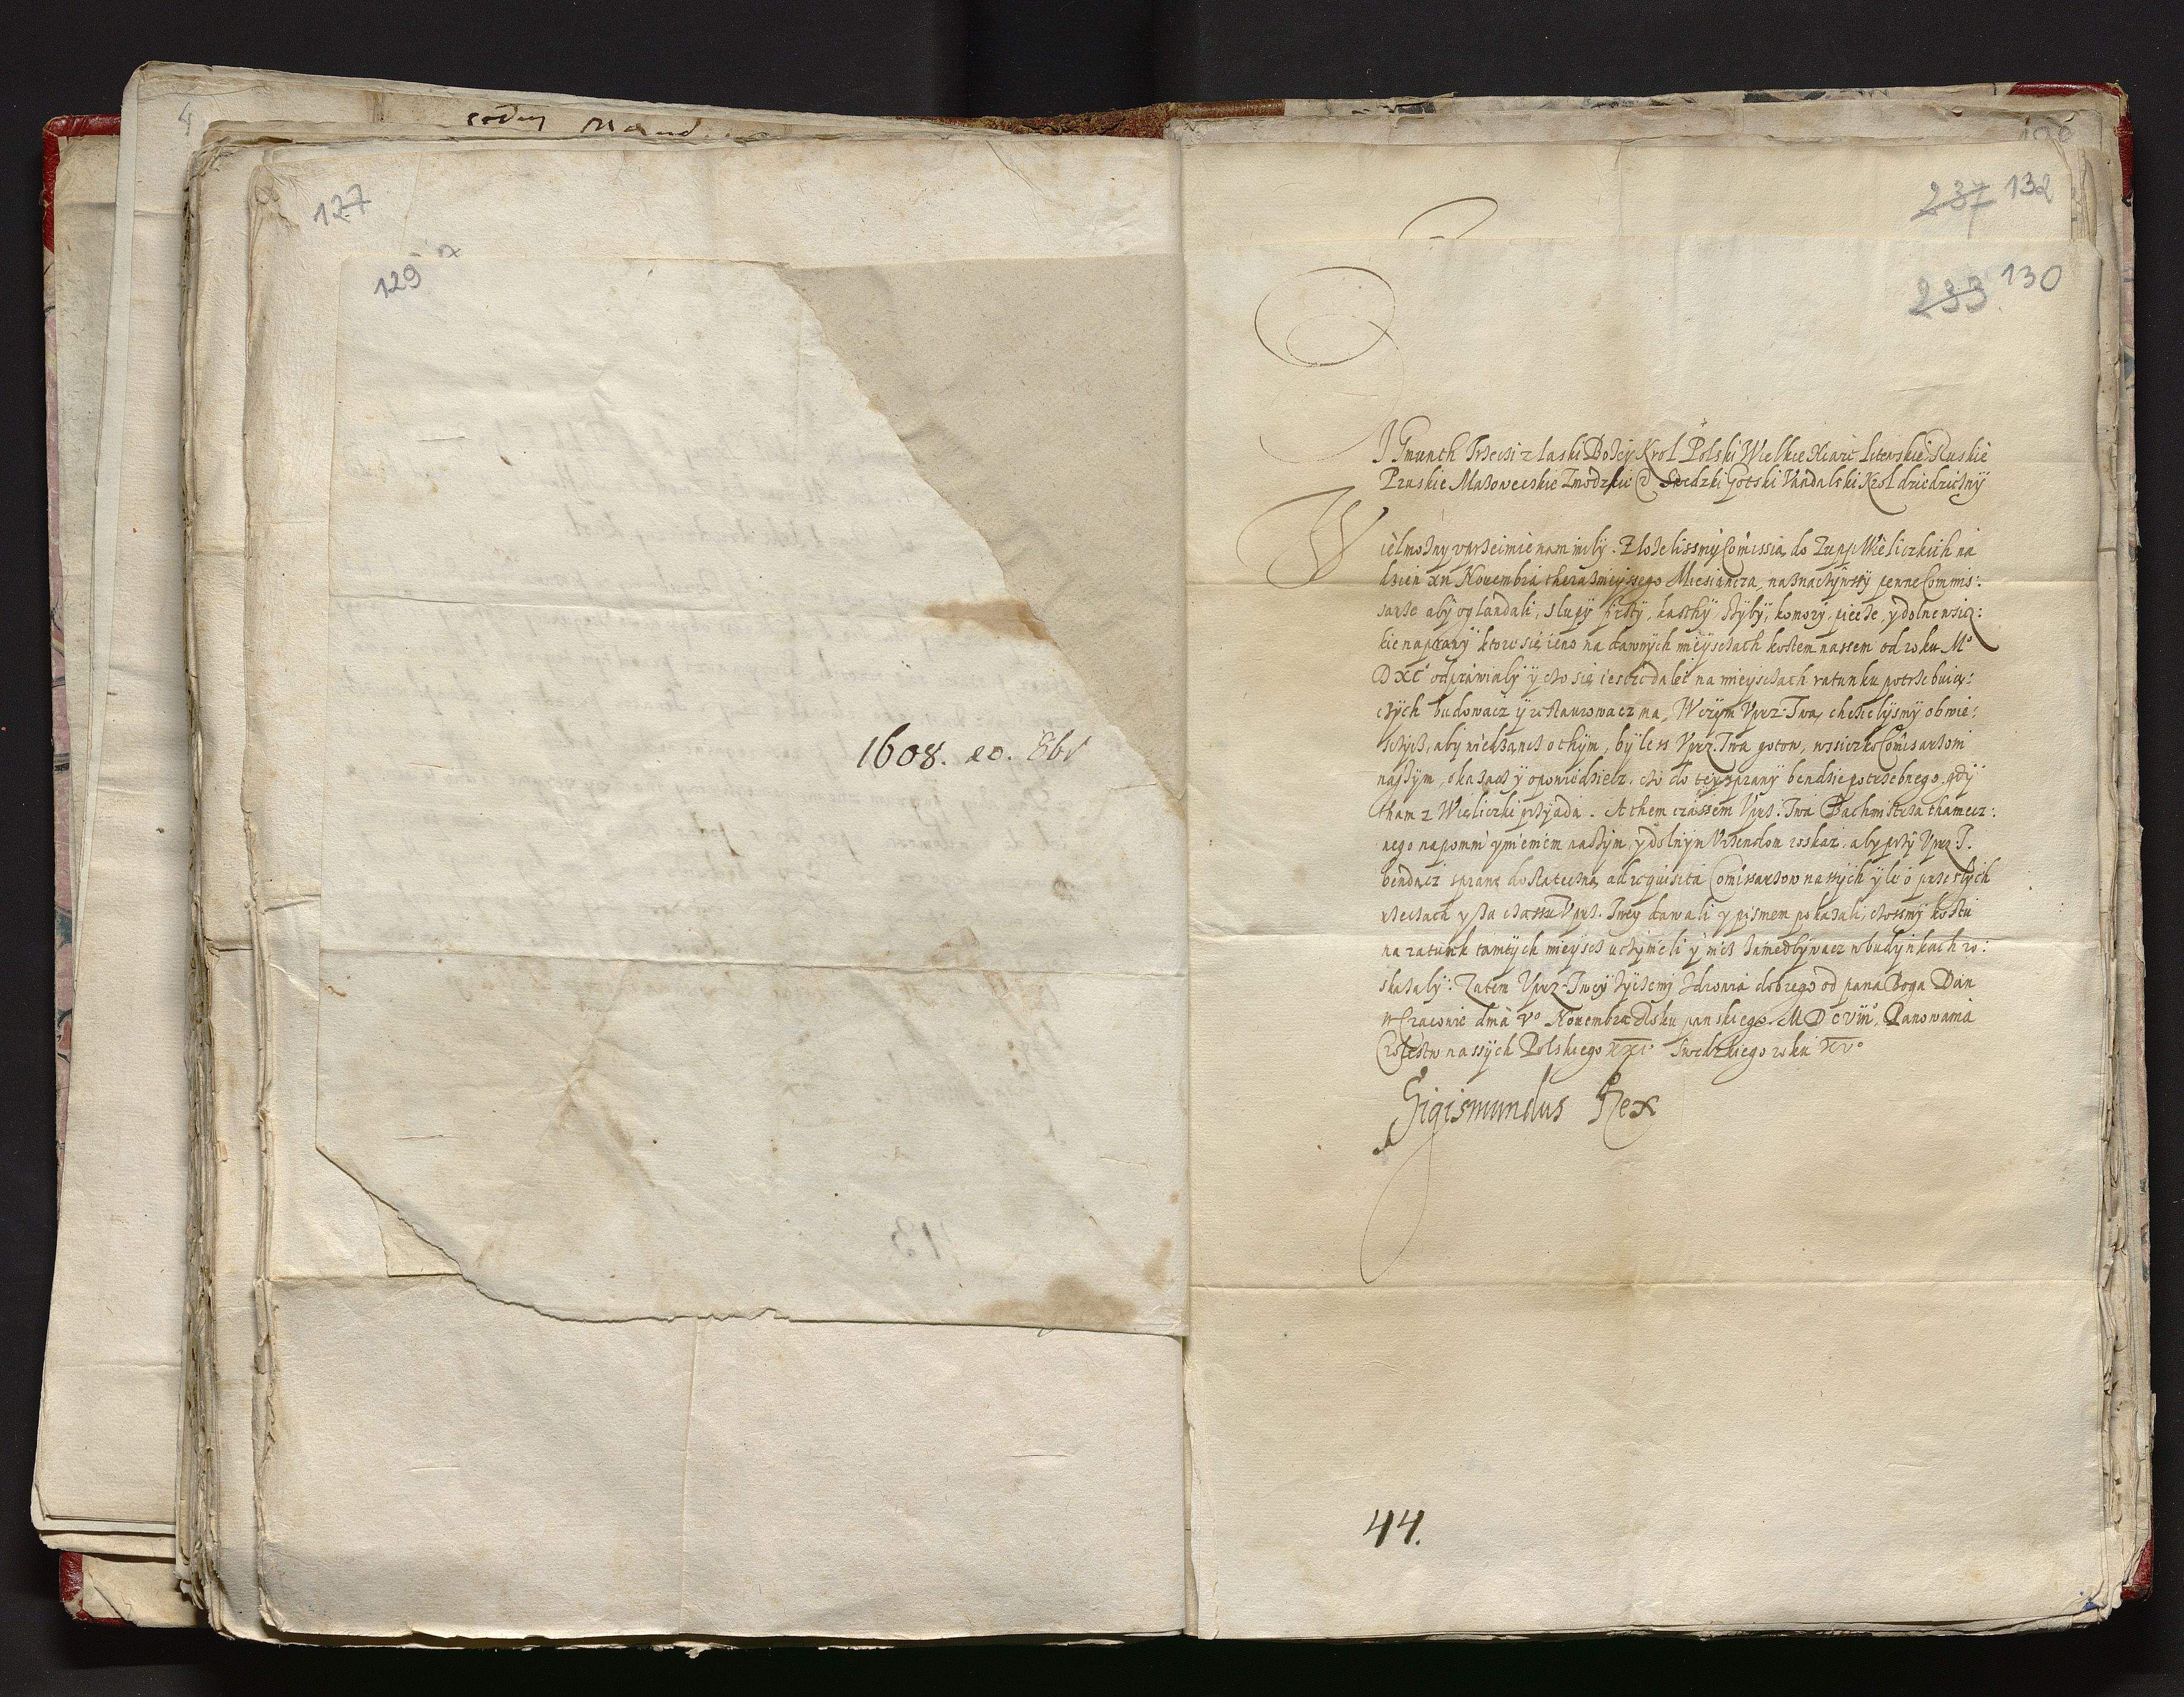 4
127
129
1608. 20. 8br
237 132
233 130
ZIGmunth Trzeczi z laski Bozey Krol Polski Wielkie Xiaze Litewskie Ruskie
Pruskie Mazoweczkie Zmodzkie Swedzki Gotski Vandalski Krol dziedziczny
Wielmozny uprzeimie nam mily. Zlozelissmy Comissią do Zupp Wieliczkich na
dzien xii Novembra therazneissego Miesiancza, naznaczywssy pewne Commis:
sarze aby oglandali, slupy, kaszty, szyby, komory, piecze, y dolne wsiz:
kie naprawy ktore się ieno na dawnych mieysczach kosztem nassem od roku Mo
DXC odprawialy y czo się iescze daley na mieysczach ratunku potrzebuią:
czych budowacz y restaurowacz ma, W czym Uprz. Twą chczielysmy obwie:
sczycz, aby wiedzancz o thym, byless Uprz. Twa gotow, wssiczko Comisarzom
naszym, okazacz y opowiedziecz. czo do tey sprawy bendzie potrzebnego, gdy
tham z Wieliczki przyada. A them czassem Uprz. Twa Bachmistrza thamecz:
nego napomni ymieniem naszym, y dolnym Urzendom roskaz, aby przy Uprz. T.
bendacz sprawe dostateczną ad requisita Comissarzow nassych yle o przeszlych
rzeczach y za czassu Uprz. Twey dawali y pismem pokazali, czossmy kosztu
na ratunk tamtych mieyscz uczynieli y nicz zamedbywacz w budynkach ro:
skazaly. Zatem Uprz. Twey zyczemy zdrowia dobrego od pana Boga Dan
w Cracowie dnia vo Novembra Roku panskiego MDCVIII. Panowania
Crolestw nassych Polskiego XXIo Swedzkiego roku XVo
Sigismundus Rex
44.